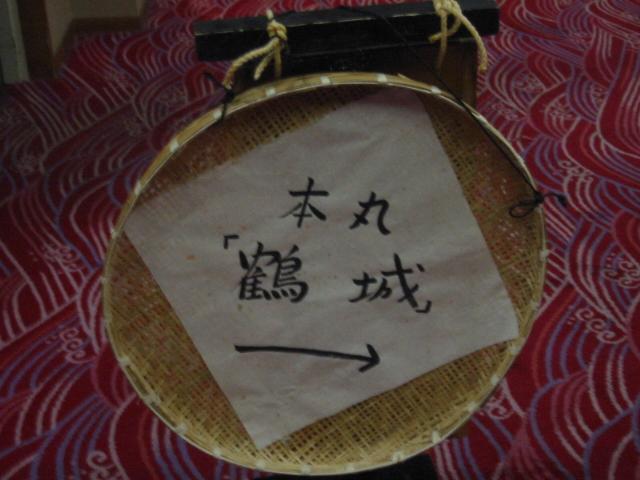 本丸
「鶴城」
→